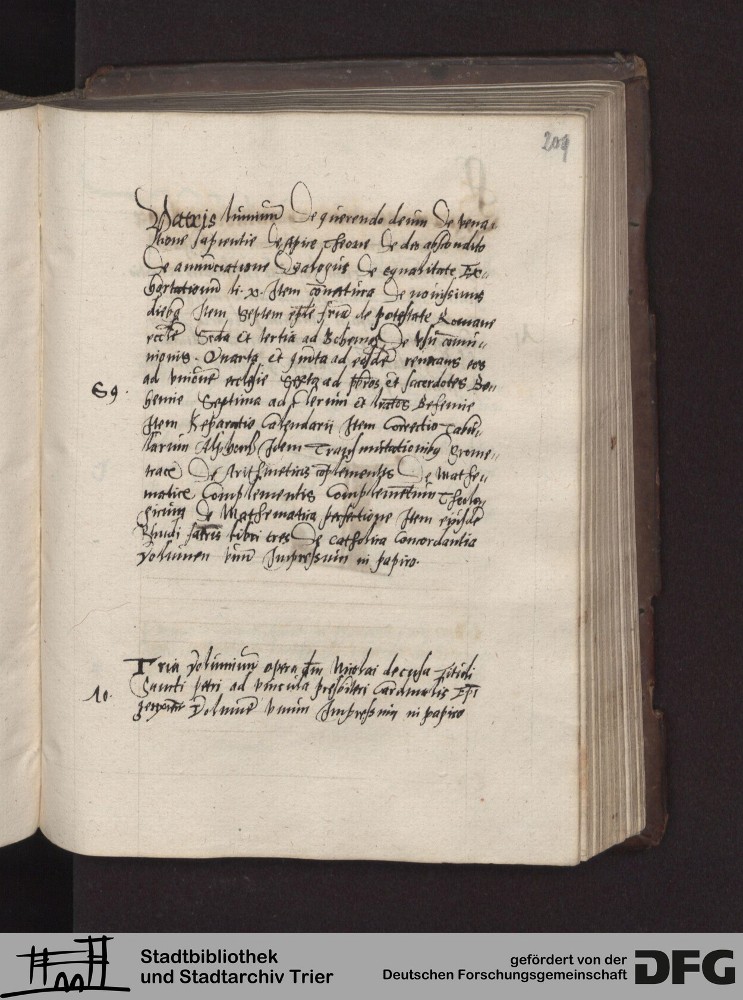 209
Patris luminum De querendo deum De vena-
tione sapientie De apice Theorie De deo abscondito
De annuntiatione Dyalogus De equalitate Ex-
hortationum li. x. Item coniectura De novissimis
diebus Item Septem eple de potestate Romane
eccle Scda et tertia ad Bohemos De Usu comu-
nionis. Quarta et quinta ad eosde revocans eos
ad unione ecclesie Sexta ad pbros et sacerdotes Bo-
S9.
hemie Septima ad Clerum et Bohemie
Item Reparatio Calendarii Item Correctio Tabu-
larum Alphonsi Idem Transmutationibus Geome-
tracis De Arithmeticis coplementis De Mathe-
maticis Complementis Complementum Theolo-
gicum De Mathematica perfectione Item eiusde
libri tres De catholica Concordantia
Volumen unu Impressum in papiro.
Tria Volumium opera Dni Nicolai de cusa Tituli
Sancti Petri ad vincula presbiteri Cardinalis
10.
Volume unum Impressum in papiro
Stadtbibliothek
und Stadtarchiv Trier
gefördert von der
Deutschen Forschungsgemeinschaft
DFG